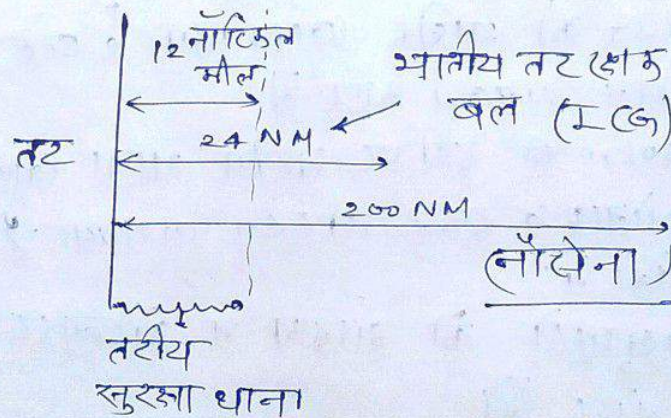 12 नॉटिकल
मील
भारतीय तट रक्षक
बल (ICG)
24 NM
तट
200 NM
(नौसेना)
तटीय
सुरक्षा थाना